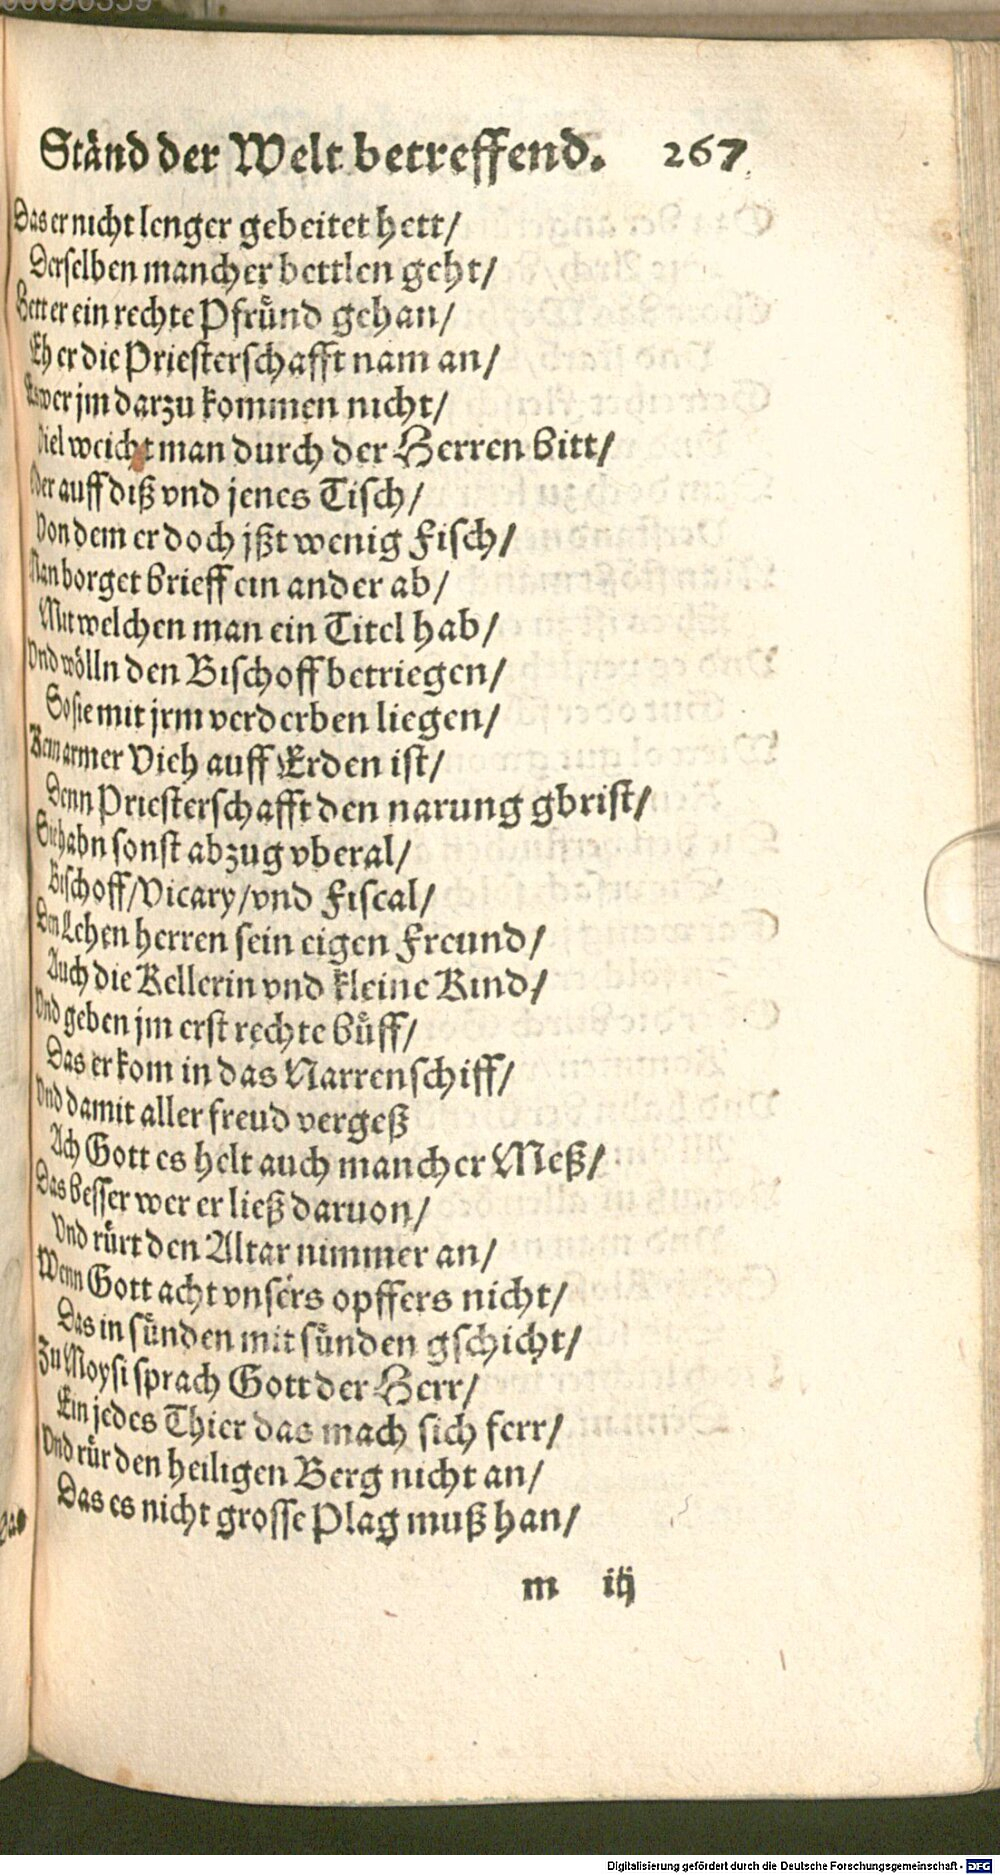 00090339
Ständ der Welt betreffend. 267
Das er nicht lenger gebeitet hett/
Derselben mancher bettlen geht/
Hett er ein rechte Pfründ gehan/
Eh er die Priesterschafft nam an/
wer jm darzu kommen nicht/
Viel weicht man durch der Herren bitt/
Oder auff diß vnd jenes Tisch/
Von dem er doch jßt wenig Fisch/
Man borget brieff ein ander ab/
Mit welchen man ein Titel hab/
Vnd wölln den Bischoff betriegen/
So sie mit jrm verderben liegen/
Kein armer Vieh auff Erden ist/
Denn Priesterschafft den narung gbrist/
Sie habn sonst abzug vberal/
Bischoff/Vicary/vnd Fiscal/
Den Lehen herren sein eigen Freund/
Auch die Kellerin vnd kleine Kind/
Vnd geben jm erst rechte büff/
Das er kom in das Narrenschiff/
Vnd damit aller freud vergeß
Ach Gott es helt auch mancher Meß/
Das besser wer er ließ daruon/
Vnd rürt den Altar nimmer an/
Wenn Gott acht vnsers opffers nicht/
Das in sünden mit sünden gschicht/
Zu Moysi sprach Gott der Herr/
Ein jedes Thier das mach sich ferr/
Vnd rür den heiligen Berg nicht an/
Das es nicht grosse Plag muß han/
m iij
Digitalisierung gefördert durch die Deutsche Forschungsgemeinschaft - DFG